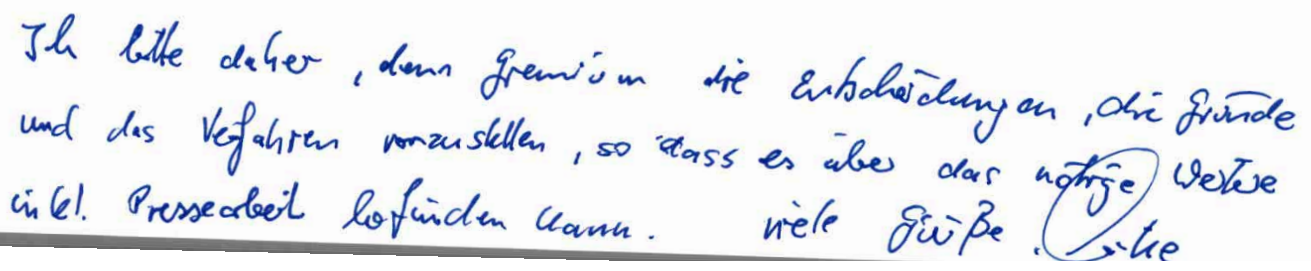 Ich bitte daher, dem Gremium die Entscheidungen, die Gründe
und das Verfahren vorzustellen, so dass es über das nötige Weitere
inkl. Pressearbeit befinden kann. viele Grüße